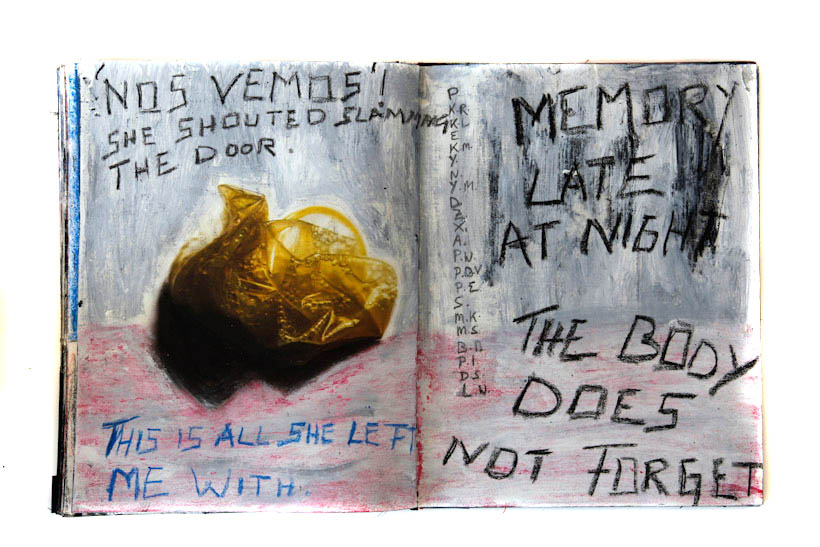 'NOS VEMOS'!
SHE SHOUTED SLAMMING
THE DOOR.
THIS IS ALL SHE LEFT
ME WITH.
MEMORY
LATE
AT NIGHT
THE BODY
DOES
NOT FORGET